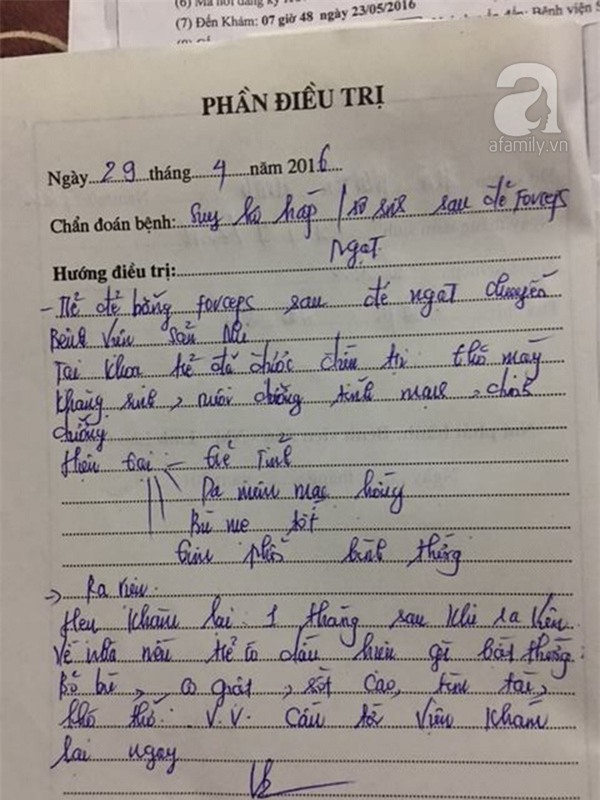 (7) Đến Khám: 07 giờ 48 ngày 23/05/2016
Bệnh viện
afamily.vn
PHẦN ĐIỀU TRỊ
Ngày 29 tháng 4 năm 2016
Chẩn đoán bệnh: Suy hô hấp / sơ sinh sau đẻ Forceps
Ngạt
Hướng điều trị:
- Trẻ đẻ bằng forceps sau đẻ ngạt chuyển
Bệnh viện Sản Nhi
Tại khoa trẻ đã được điều trị thở máy
kháng sinh, nuôi dưỡng tĩnh mạch,
dưỡng
Hiện tại - trẻ tỉnh
Da niêm mạc hồng
Bú mẹ tốt
Tim phổi bình thường
→ Ra viện.
Hẹn khám lại 1 tháng sau khi ra viện
Về nhà nếu trẻ có dấu hiệu gì bất thường
Bỏ bú, co giật, sốt cao, tím tái,
khó thở. v.v. tới viện khám
lại ngay